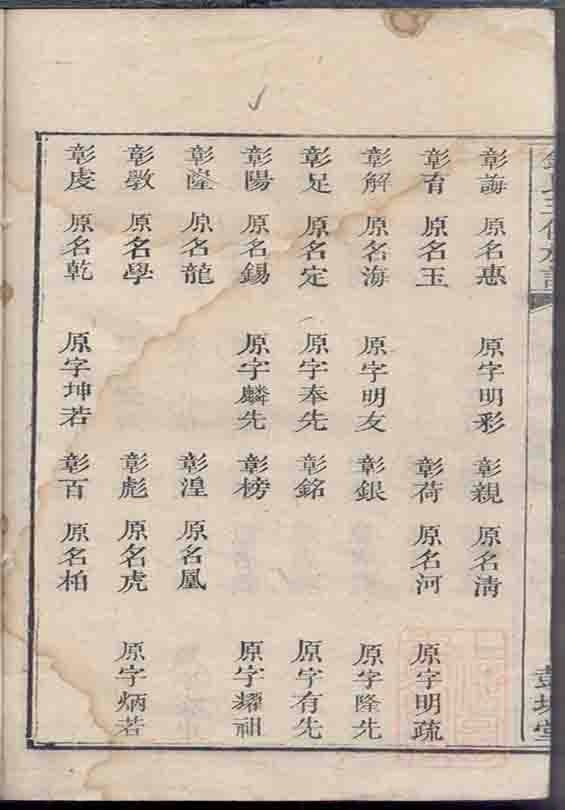 彰誨 原名惠 原字明彩 彰親 原名清
彰育 原名玉 彰荷 原名河 原字明疏
彰解 原名海 原字明友 彰銀 原字隆先
彰足 原名定 原字奉先 彰銘 原字有先
彰陽 原名錫 原字麟先 彰榜 原字耀祖
彰隆 原名龍 彰湟 原名凰
彰斆 原名學 彰彪 原名虎 原字炳若
彰虔 原名乾 原字坤若 彰百 原名柏